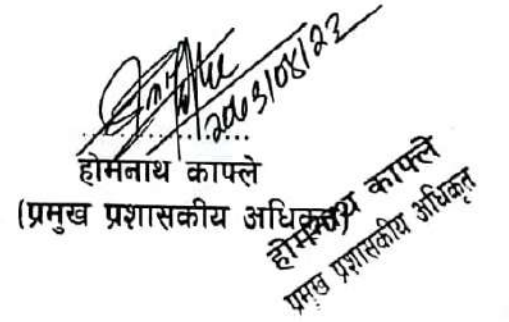 2063/08/23
होमनाथ काफ्ले
(प्रमुख प्रशासकीय अधिकृत)
होमनाथ काफ्ले
प्रमुख प्रशासकीय अधिकृत